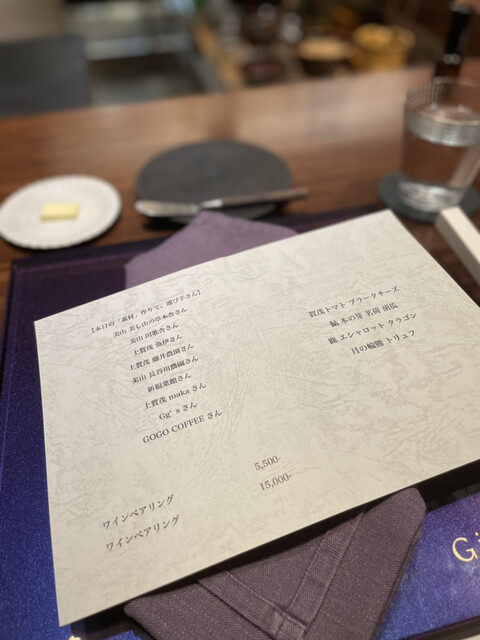 【本日の「素材」作りて、運び手さん】
美山 美し山の草木舎さん
美山 田歌舎さん
上賀茂 魚伊さん
上賀茂 藤井農園さん
美山 長谷川農園さん
新福菜館さん
上賀茂 makaさん
Gg's さん
GOGO COFFEE さん
賀茂トマト ブラータチーズ
鯒 木の芽 茗荷 胡瓜
エシャロット タラゴン
月の輪熊 トリュフ
ワインペアリング 5,500-
ワインペアリング 15,000-